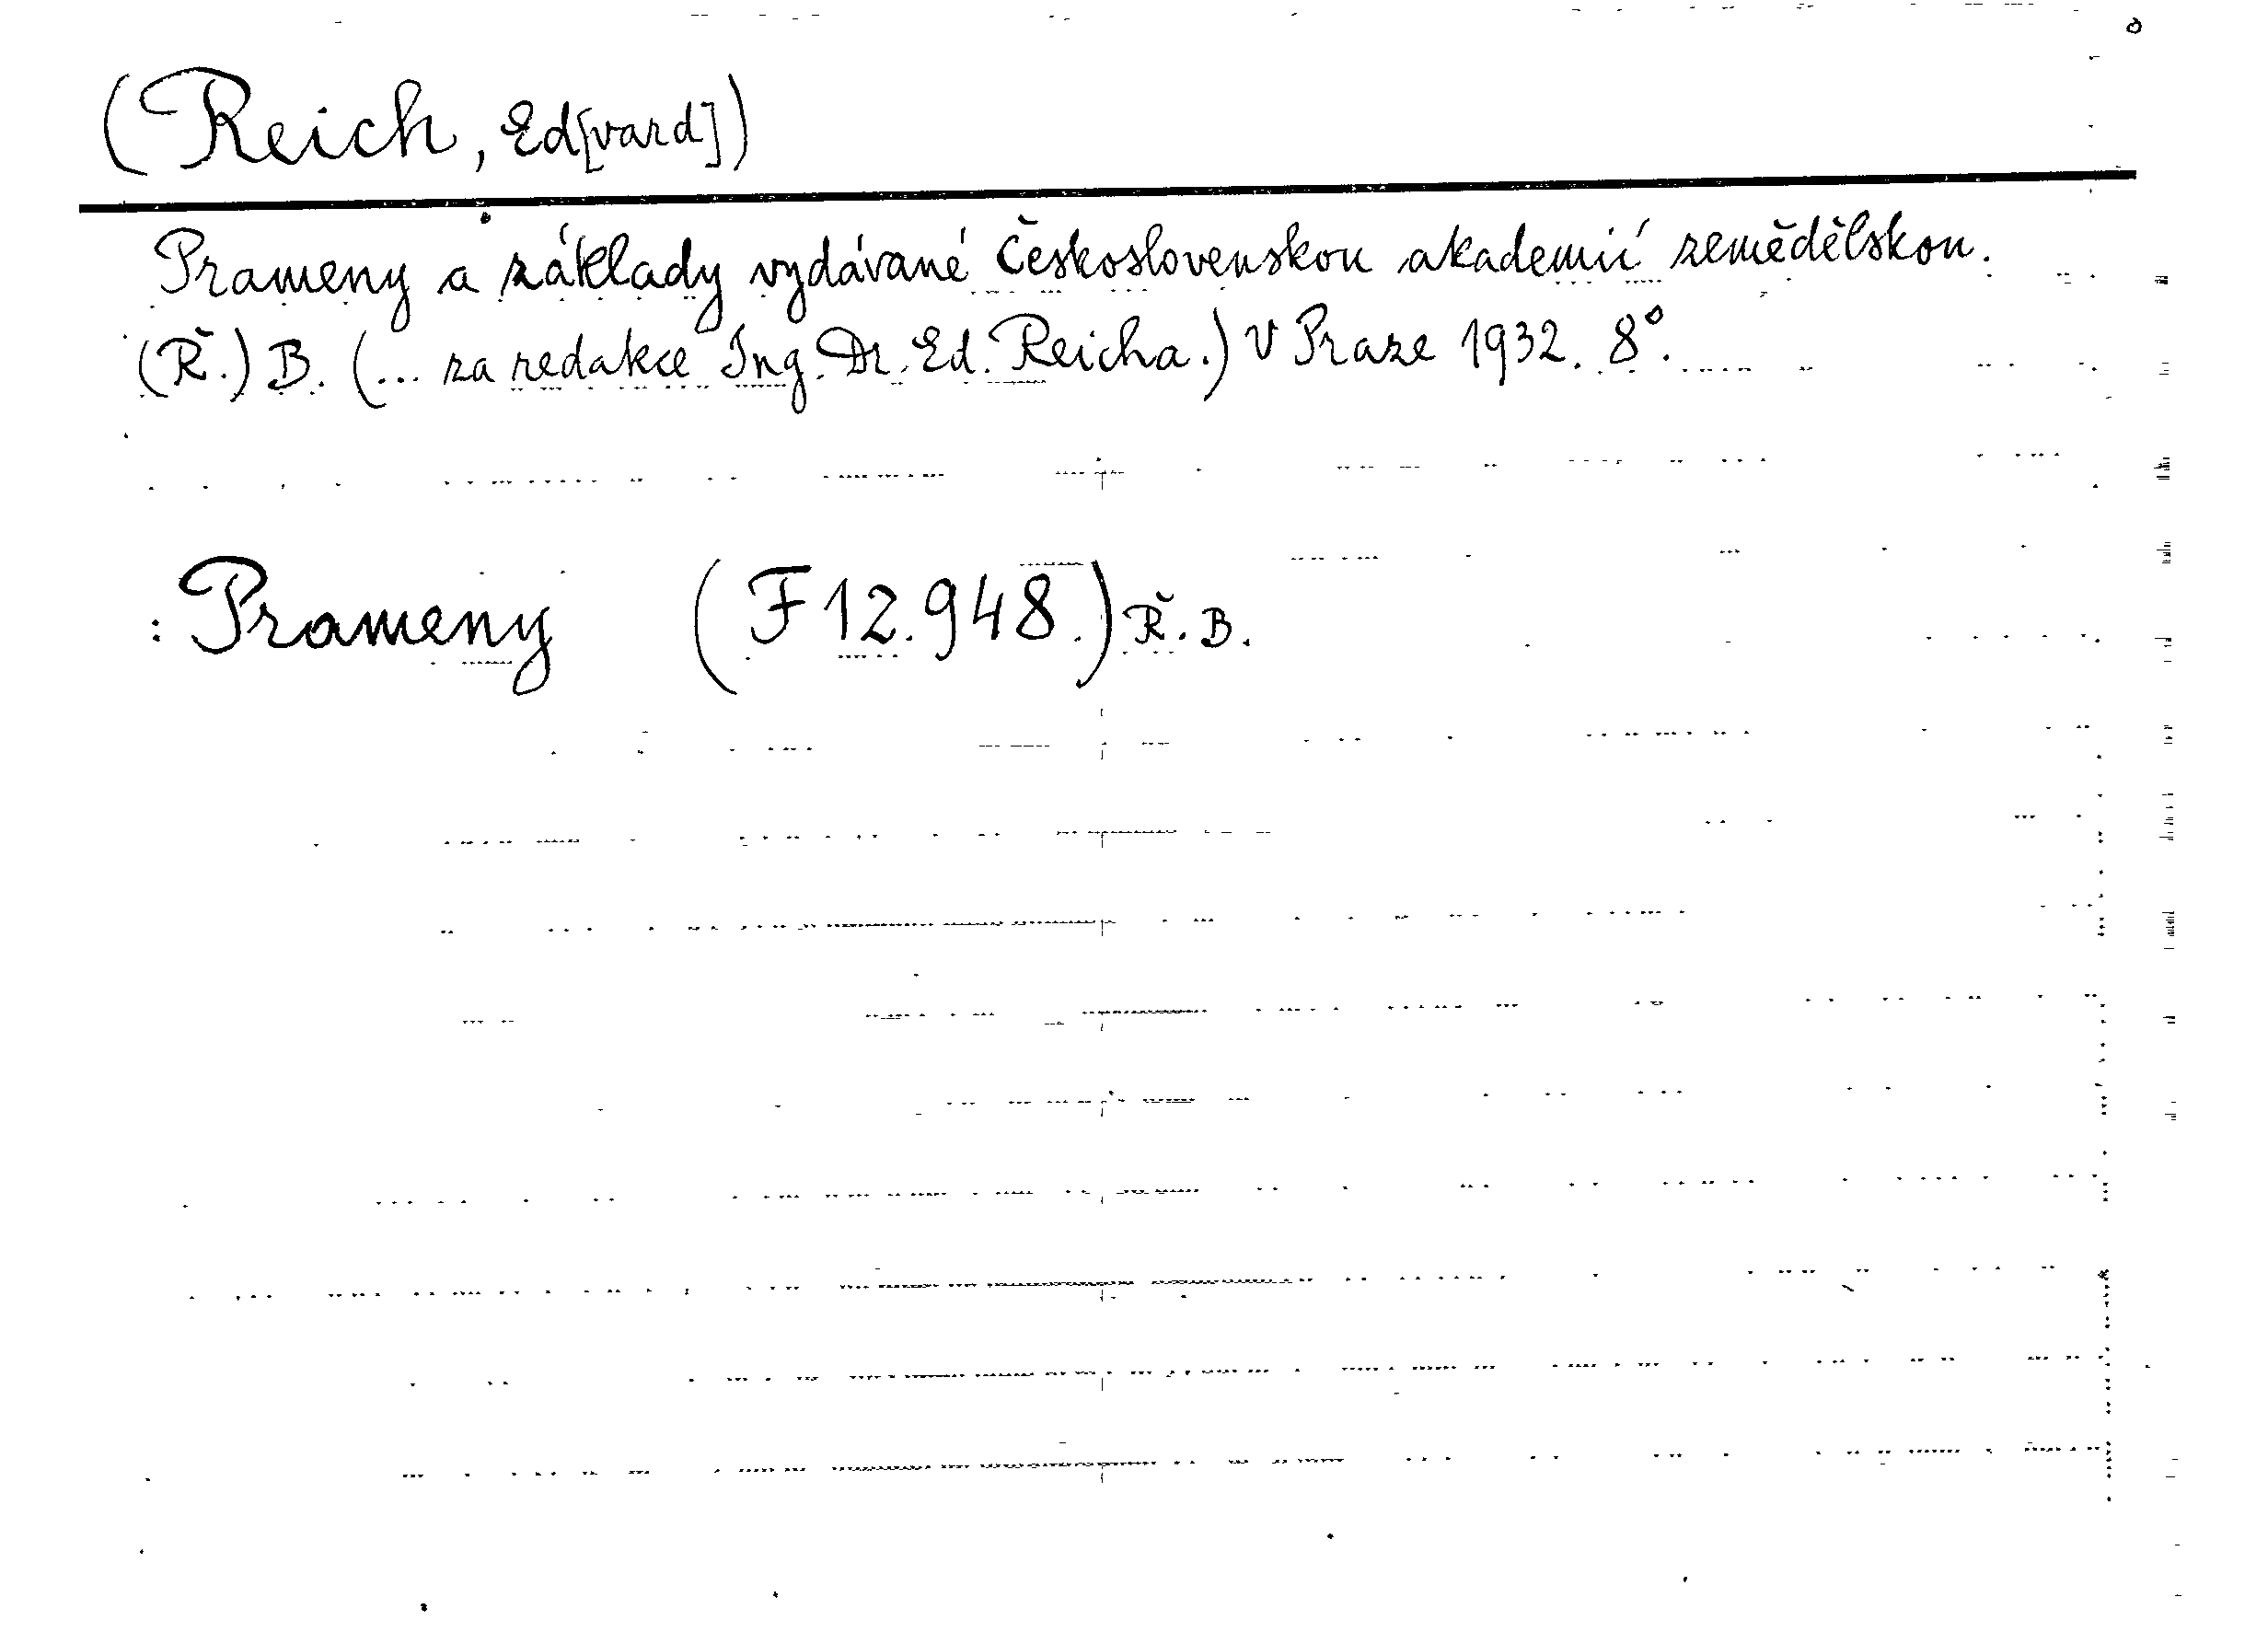 (Reich, Ed[vard])
Prameny a základy vydávané Československou akademií zemědělskou.
(Ř.) B. (... za redakce Ing. Dr. Ed. Reicha.) V Praze 1932. 8°.
: Prameny (F 12.948.) Ř. B.